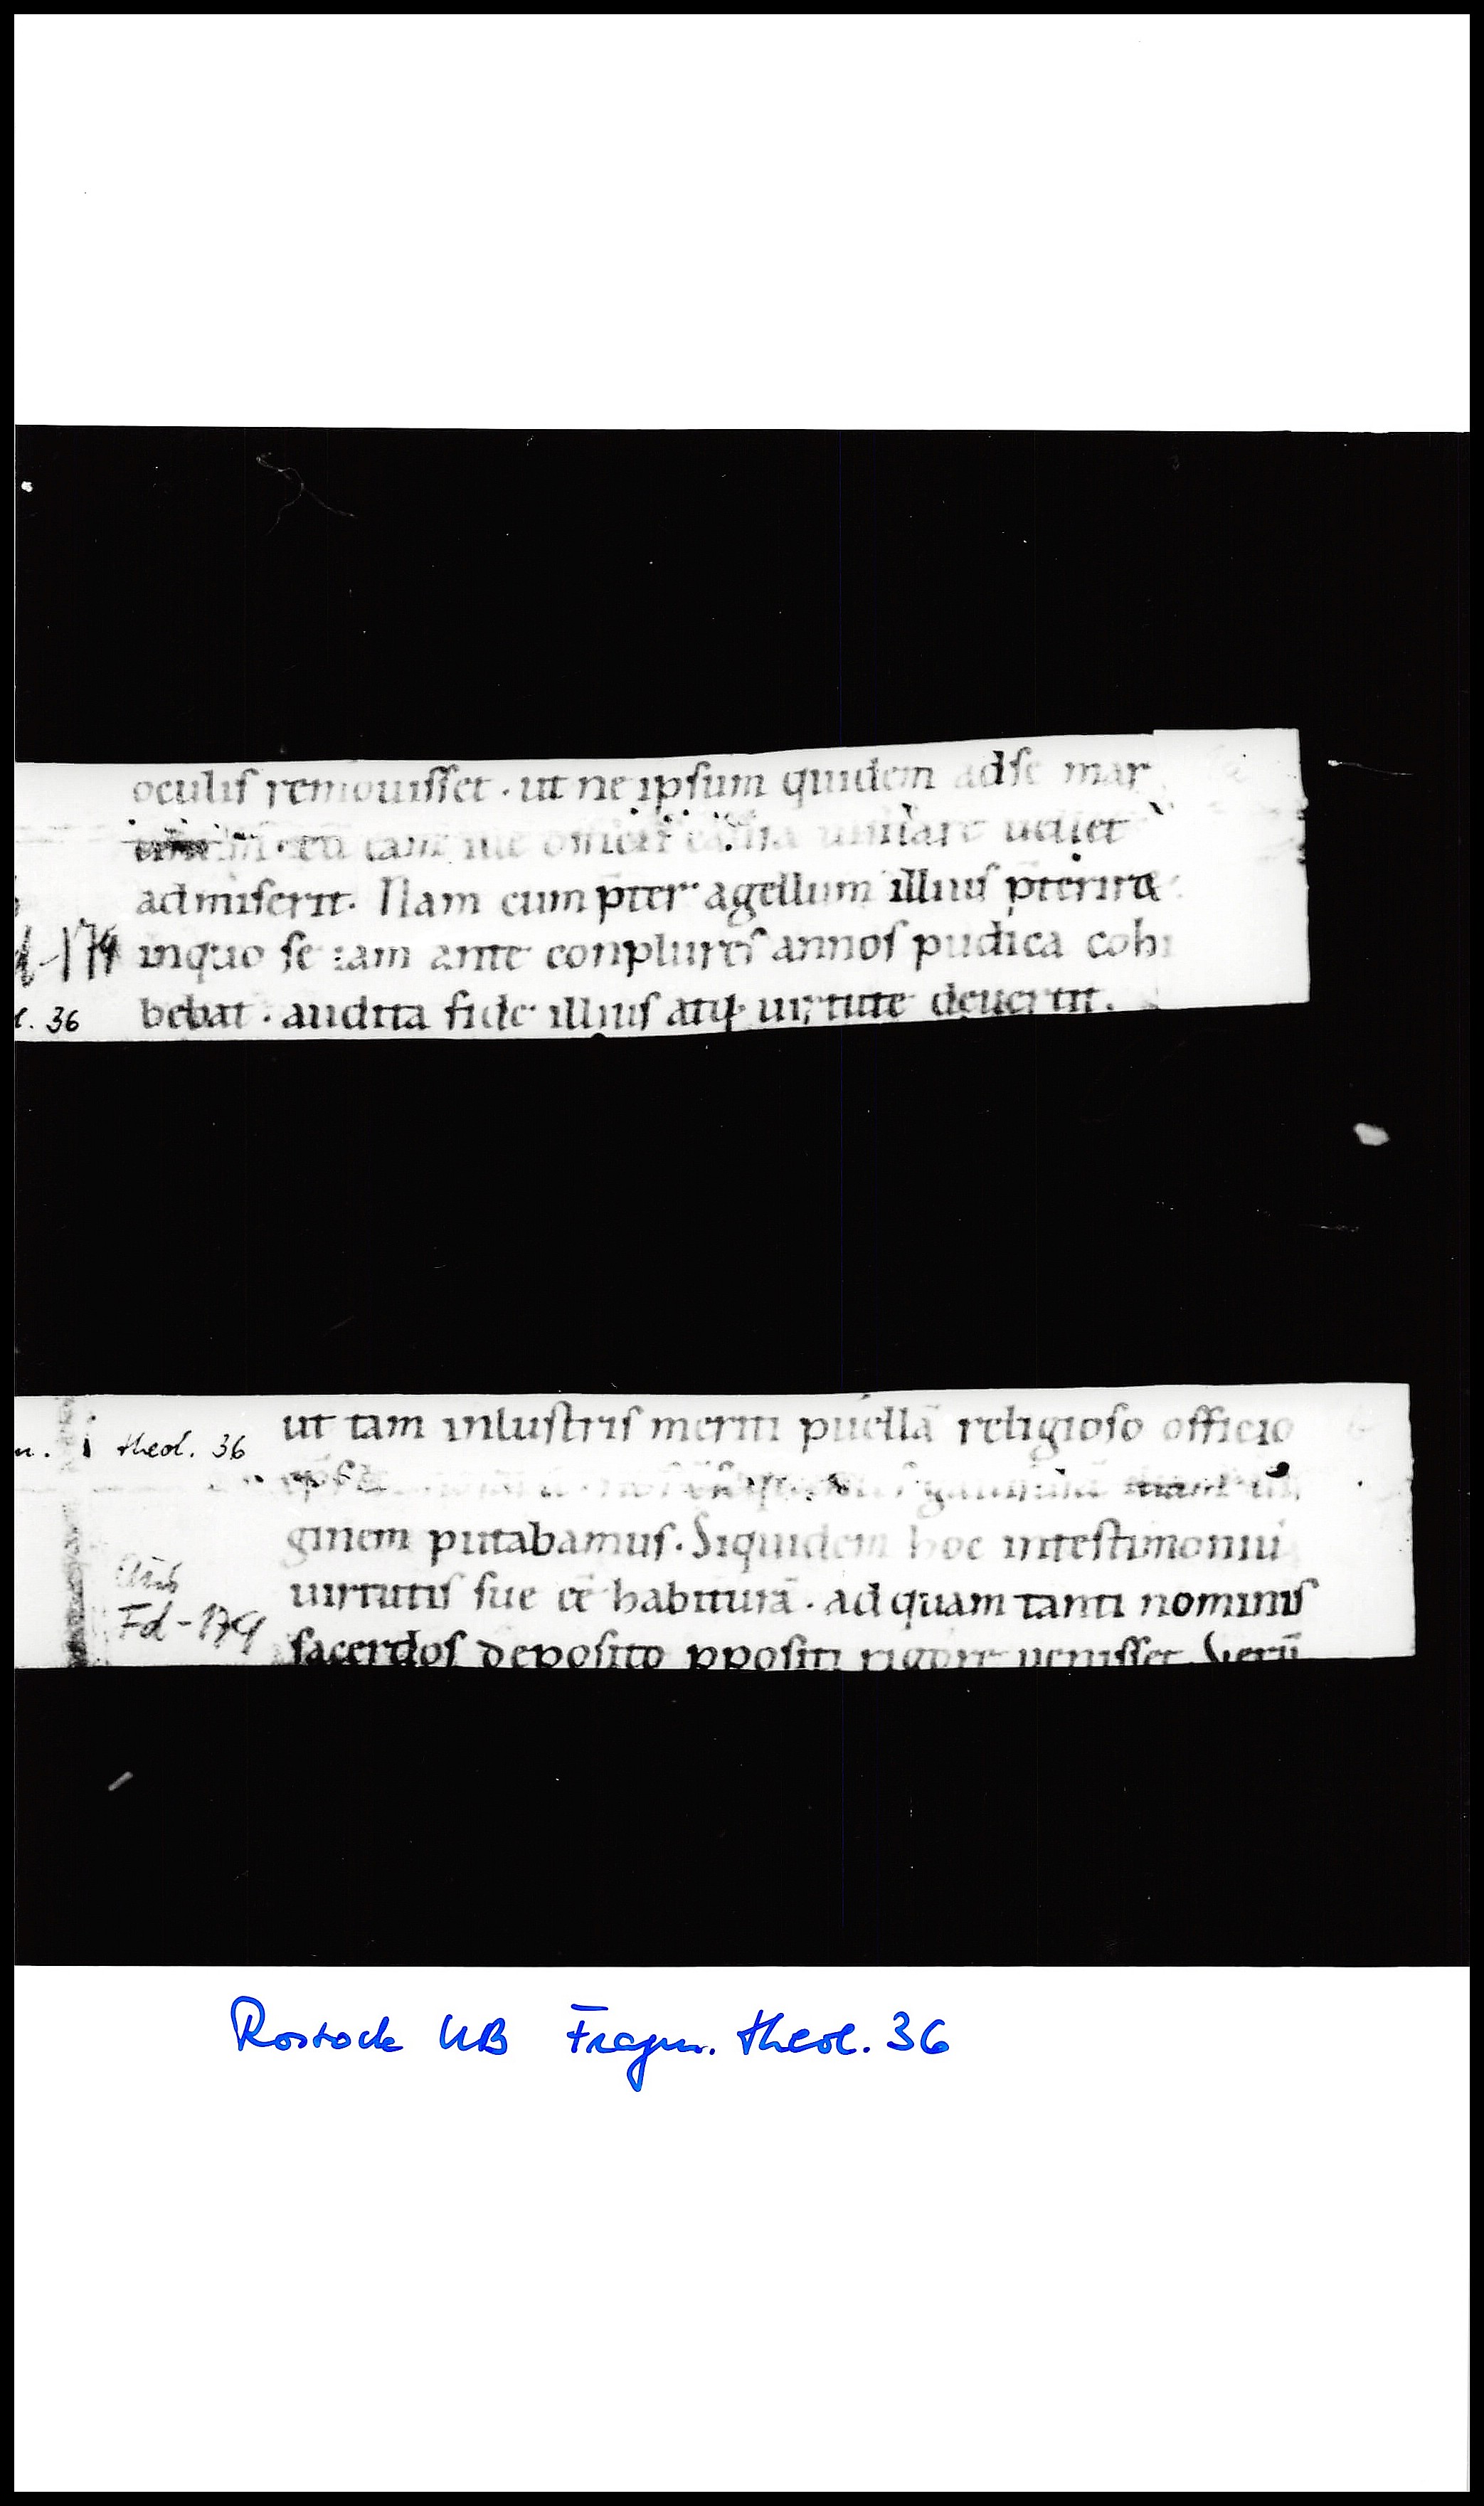 oculis remouisset · ut ne ipsum quidem adse mar
uellet
admiserit. Nam cum p̄ter agellum illius p̄teriret
inquo se iam ante conplures annos pudica cohi
bebat · audita fide illius atq; uirtute deuertit.
d-179
l. 36
ut tam inlustris meriti puellā religioso officio
ginem putabamus. Siquidem hoc intestimoniū
uirtutis sue eē habiturā · ad quam tanti nominis
sacerdos deposito ppositi rigore uenisset. Verū
theol. 36
Fd-179
Rostock UB Fragm. theol. 36